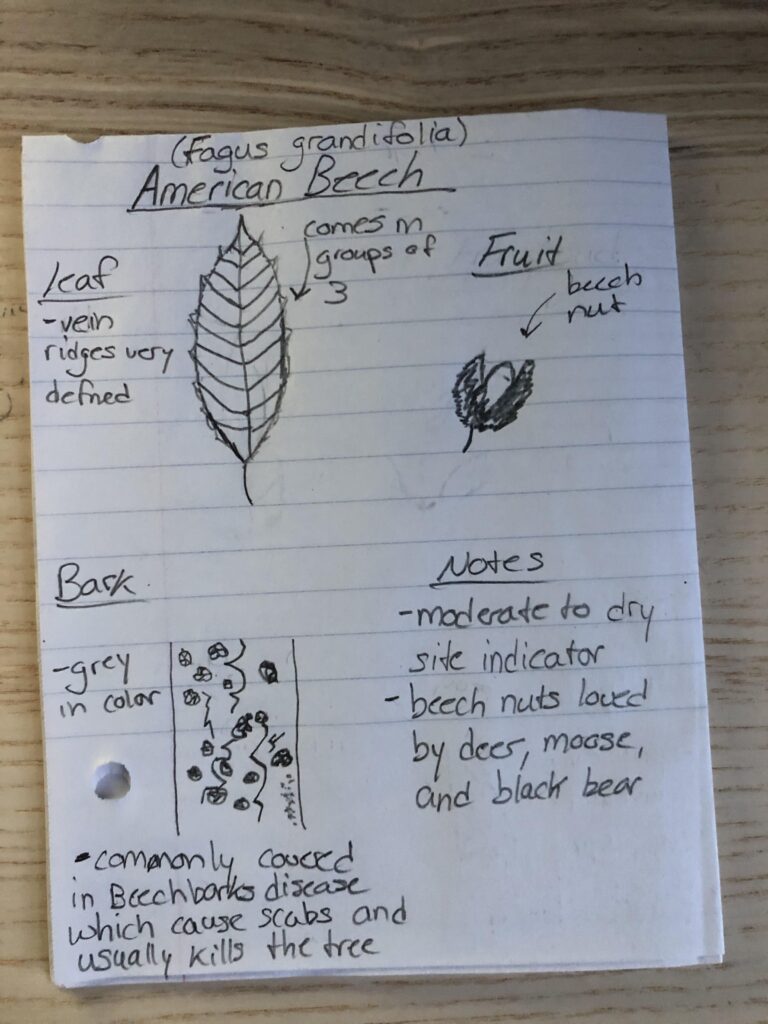 (Fagus grandifolia)
American Beech
leaf
-vein
ridges very
defined
comes in
groups of
3
Fruit
beech
nut
Bark
-grey
in color
-commonly covered
in Beechbarks disease
which cause scabs and
usually kills the tree
Notes
-moderate to dry
site indicator
- beech nuts loved
by deer, moose,
and black bear